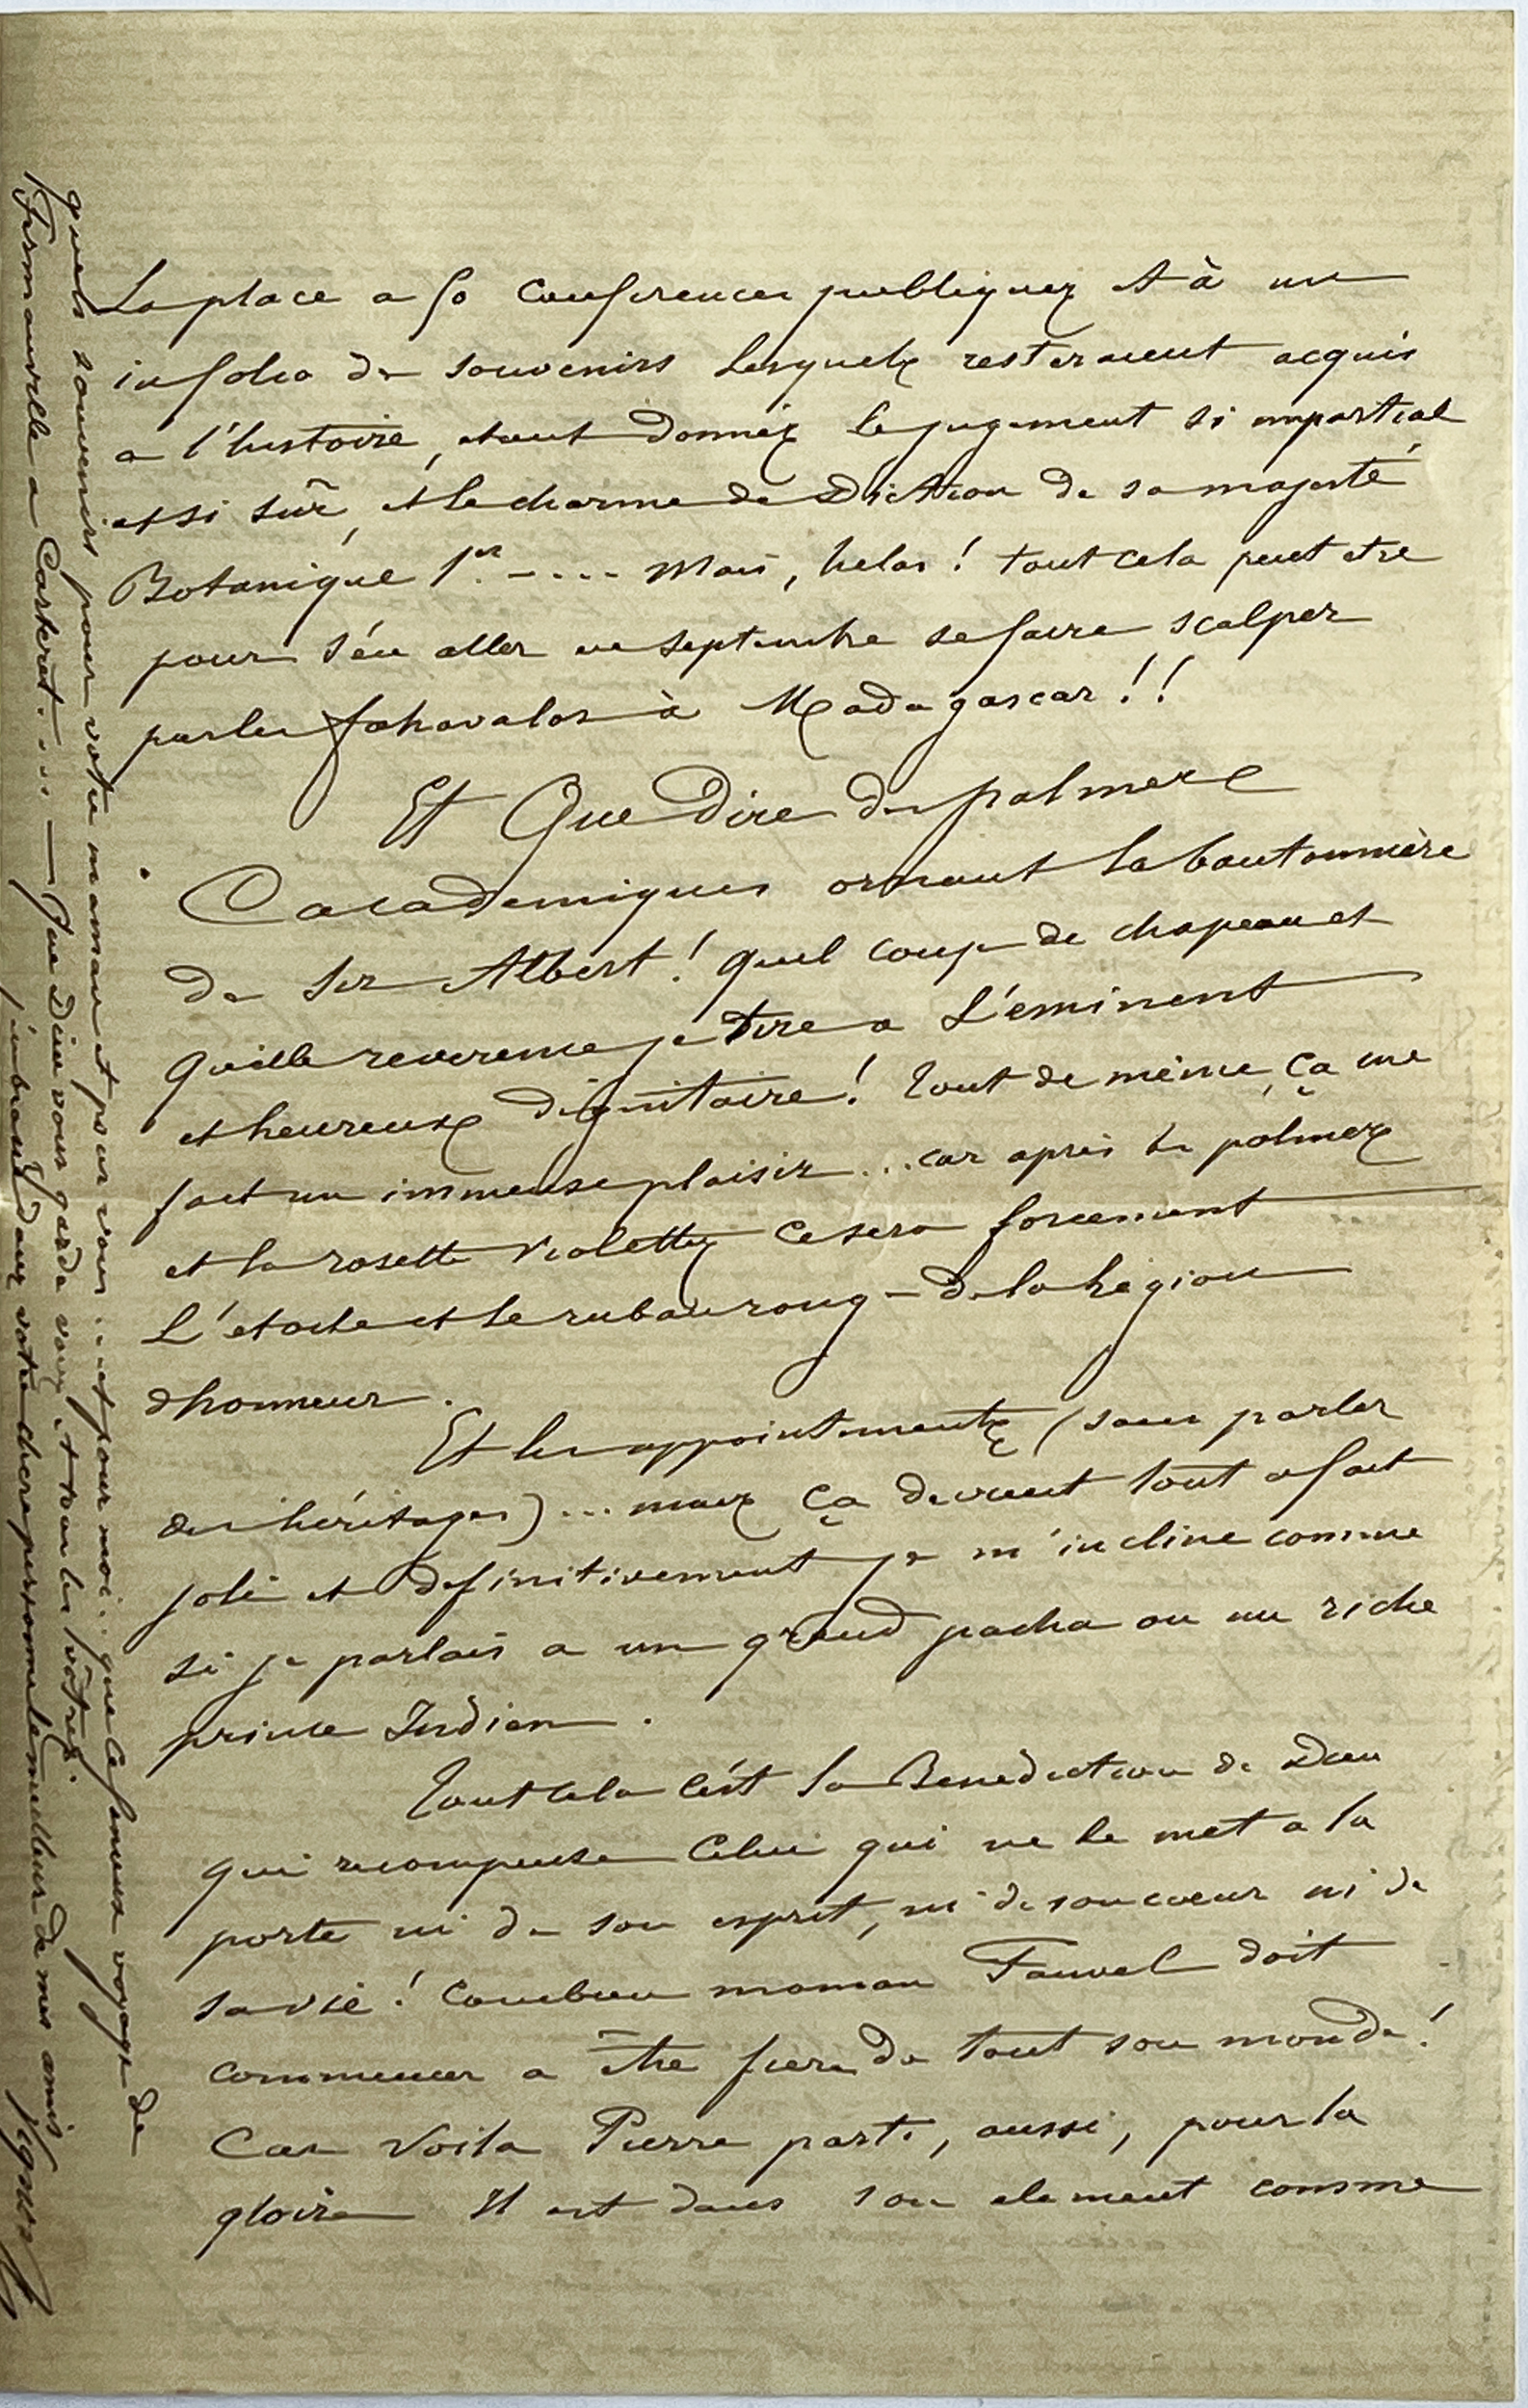 La place a 50 conferences publiques et à un
infolio de souvenirs lesquels resteraient acquis
a l'histoire, etant donnés le jugement si impartial
et si sûr, et le charme de Diction de sa majesté
Botanique 1er ..... Mais, helas ! tout cela peut etre
pour s'én aller en septembre se faire scalper
par les fahavalos à Madagascar !!
Et Que Dire des palmes
academiques ornant la boutonnière
de ser Albert ! quel coup de chapeau et
quelle reverence je tire a L'éminent
et heureux dignitaire ! Tout de même, ça me
fait un immense plaisir ... car après les palmes
et la rosette violette ce sera forcement
L'etoile et le ruban rouge de la Legion
d honneur .
Et les appointments (sans parler
des héritages) ... mais ça devient tout a fait
joli et definitivement je m'incline comme
si je parlais a un grand pacha ou un riche
prince Indien .
Tout cela c'ést la Benediction de Dieu
qui recompense Celui qui ne le met a la
porte ni de son esprit, ni de son coeur ni de
sa vie ! Combien maman Fauvel doit
commencer a être fiere de tout son monde !
Car voila Pierre parti, aussi, pour la
gloire Il est dans son element comme
quels souvenirs pour votre maman et pour vous ... et pour moi .. que ce fameux voyage de
Fermanville a Carteret .... — Que Dieu vous garde vous et tous les vôtres.
j'embrasse dans votre chere personne le meilleur de mes amis